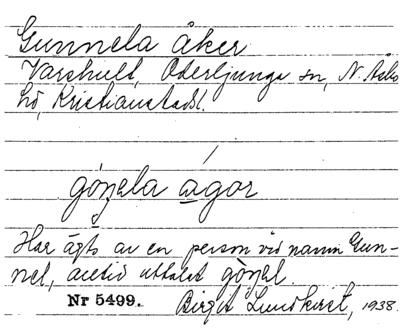 Gunnela åker
Varshult, Oderljunga sn, N. Åsbo
hd, Kristianstadsl.
gónela ågor
Har ägts av en person vid namn Gun-
nel, alltid uttalat gònel.
Nr 5499. Birgit Lundkvist, 1938.